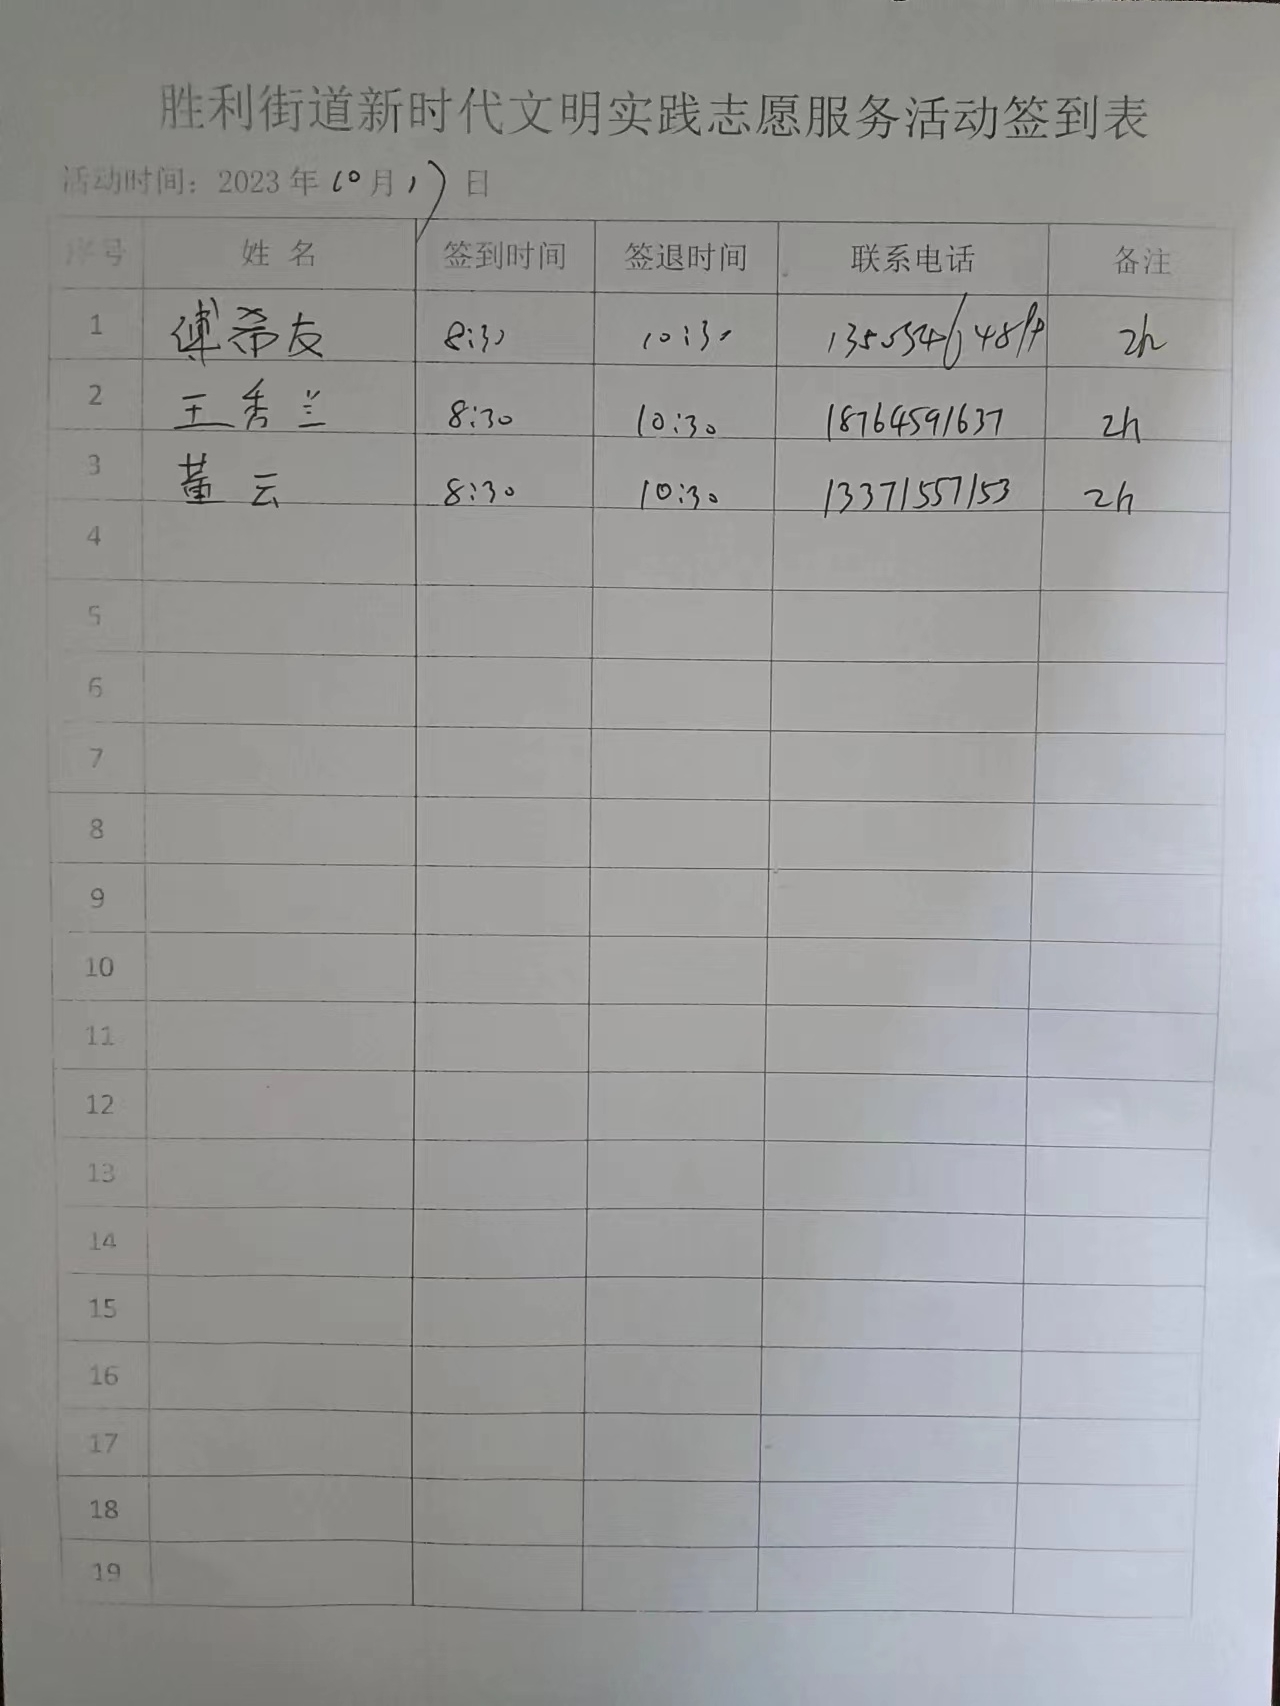 胜利街道新时代文明实践志愿服务活动签到表
活动时间：2023年10月17日
序号 姓名 签到时间 签退时间 联系电话 备注
1 傅希友 8:30 10:30 2h
2 王秀兰 8:30 10:30 18764591637 2h
3 董云 8:30 10:30 13371557153 2h
4
5
6
7
8
9
10
11
12
13
14
15
16
17
18
19